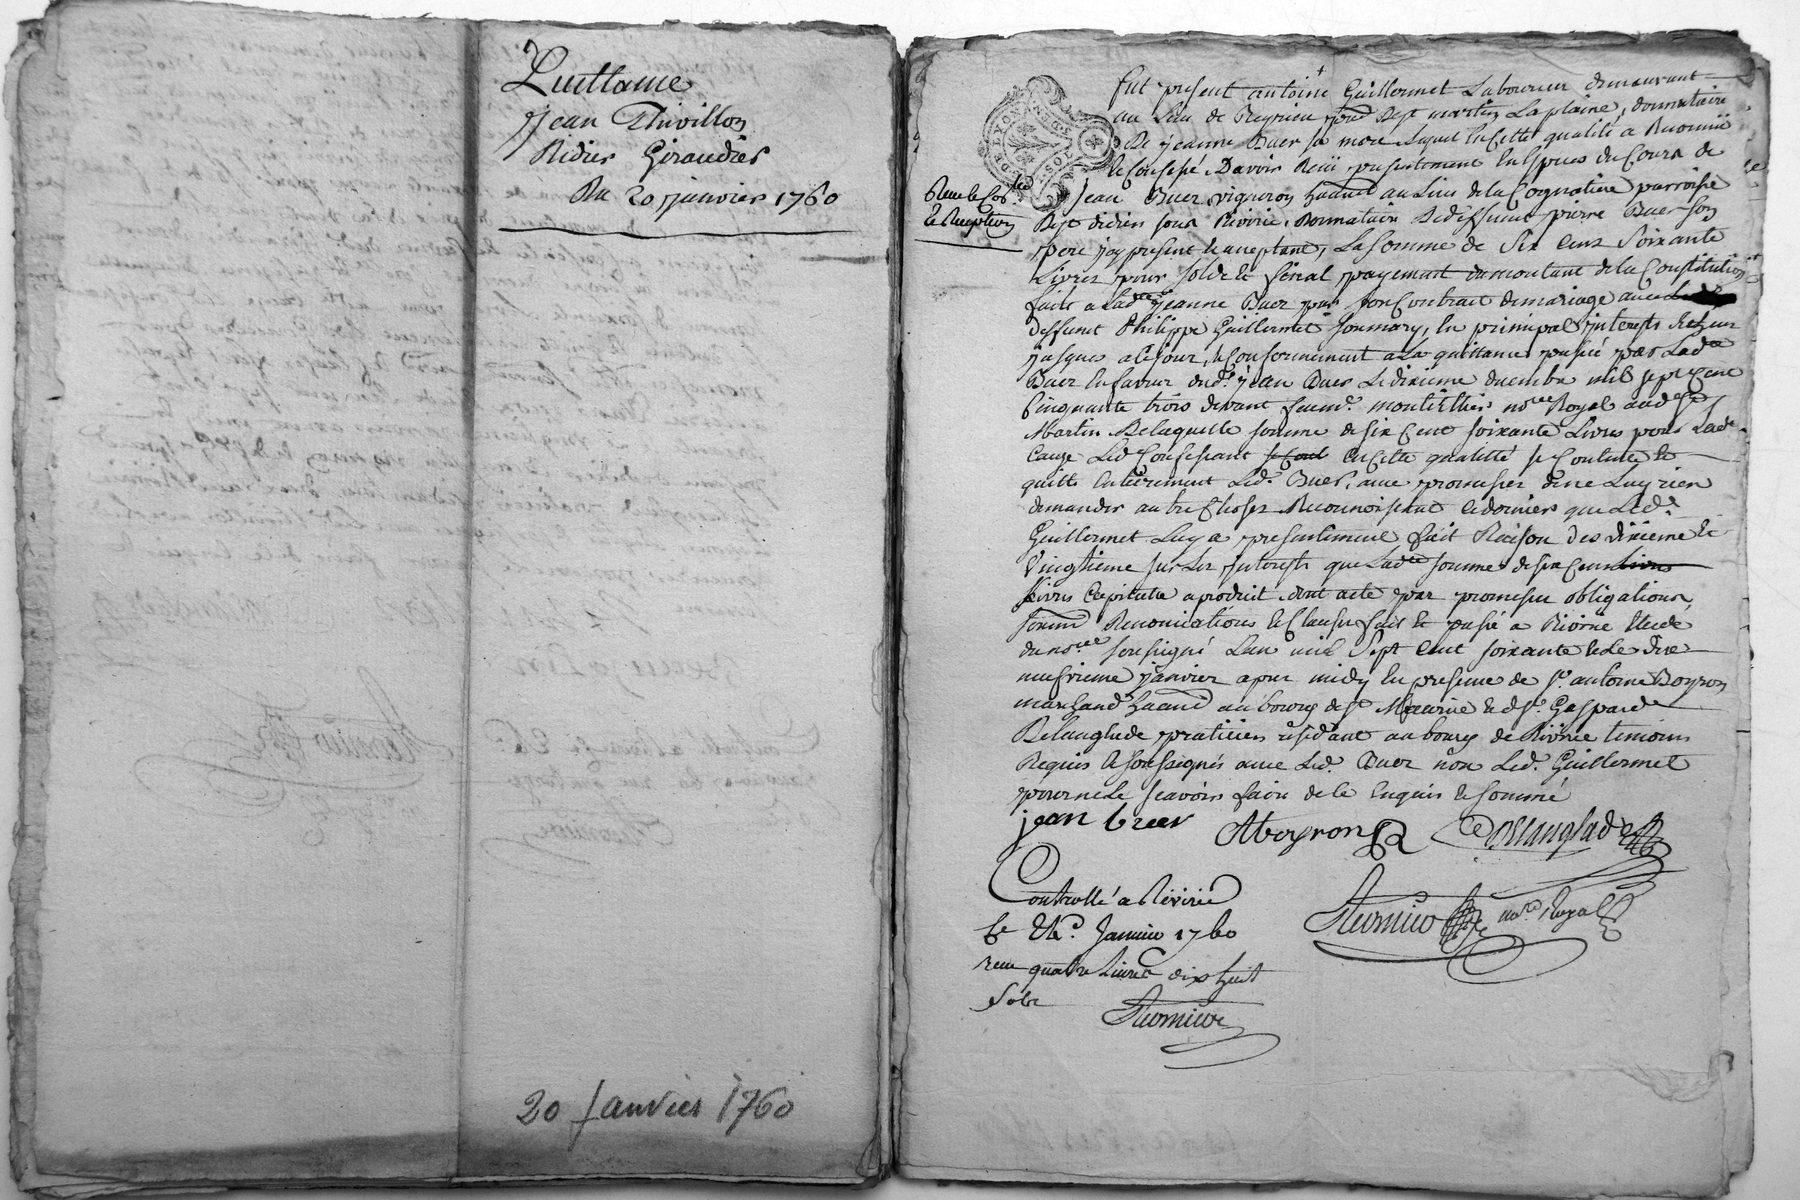 Quittance
Jean Thivillon
Didier Giraudier
Du 20 janvier 1760
20 Janvier 1760
GEN. DE LYON
SOLS. DEN.
Fut present antoine Guillermet Laboureur demeurant
au Lieu de Peyrieu psse de st martin La plaine, donnataire
de jeanne Buer sa mere Lequel en Cette qualité a Reconnu
et Confessé Davoir Receu presentement en Especes du Cours de
Jean Buer vigneron habitant au Lieu de la Cognatiere parroisse
de st didier sous Riviric, Donnataire de deffunt pierre Buer son
pere icy present et acceptant, La somme de six cens soixante
Livres pour solde et finial payement du montant de la Constitution
faite a Ladte jeanne Buer par son Contrat de mariage avec
deffunt Philippe Guillermet son mary, en principal interests
jusques a ce jour, et Conformement a La quittance passée par Ladte
Buer en faveur dud. jean Buer Le dixieme decembre mil sept Cent
Cinquante trois devant feu me. montellier nore Royal aud st
Martin De laquelle somme de six Cent soixante Livres pour Lade
Cause Led. Confessant en Cette qualitté se Contente et
quitte entierement Led. Buer, avec promesse de ne Luy rien
demander autre Chose, Reconnoissant ce dernier que Led.
Guillermet Luy a presentement fait Raison des dixieme et
Vingtieme sur Les interests que Ladte somme de six Cens Livres
Livres Capitale a produit dont acte par promesses obligations,
soumons Renonciations et Clauses fait et passé a Rivirie Etude
du nore soussigné L'an mil sept cent soixante et Le dix
neufvieme janvier apres midy en presence de sr. antoine Boyron
marchand habitant au bourg de st Maurice et de sr. Gaspard
Delanglade praticien residant au bourg de Rivirie temoins
Requis et soussignés avec Led. Buer non Led. Guillermet
pour ne Le scavoir faire de ce Enquis et sommé
jean buer ABoyron Delanglade
nore Royal
Controllé a Rivirie
Le Janvier 1760
receu quatre Livres dix huit
sols